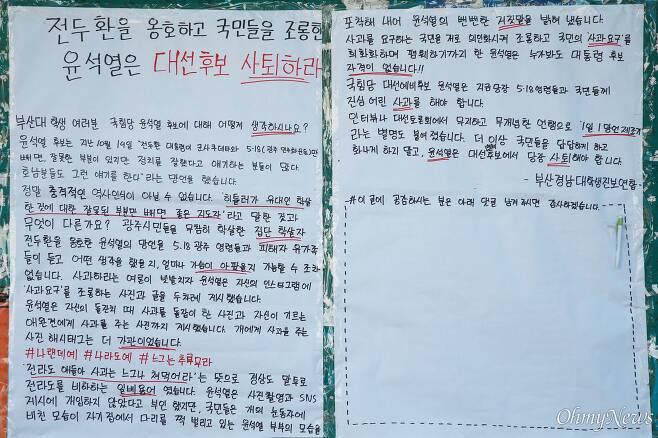 전두환을 옹호하고 국민들을 조롱한
윤석열은 대선후보 사퇴하라
부산대 학생 여러분 국힘당 윤석열 후보에 대해 어떻게 생각하시나요?
윤석열 후보는 지난 10월 19일 "전두환 대통령이 군사쿠데타와 5·18(광주 민주화운동)만
빼면, 잘못한 부분이 있지만 정치를 잘했다고 얘기하는 분들이 많다.
호남분들도 그런 얘기를 한다"라는 망언을 했습니다.
정말 충격적인 역사인식이 아닐 수 없습니다. '히틀러가 유대인 학살
한 것에 대한 잘못된 부분만 빼면 좋은 지도자'라고 말한 것과
무엇이 다른가요? 광주시민들을 무참히 학살한 집단 학살자
전두환을 옹호한 윤석열의 망언을 5·18 광주 영령들과 피해자 유가족
들이 듣고 어떤 생각을 했을지, 얼마나 가슴이 아팠을지 가늠할 수 조차
없습니다. 사과하라는 여론이 빗발치자 윤석열은 자신의 인스타그램에
'사과요구'를 조롱하는 사진과 글을 두차례 게시했습니다.
윤석열은 자신의 돌잔치 때 사과를 돌잡이 한 사진과 자신이 기르는
애완견에게 사과를 주는 사진까지 게시했습니다. 개에게 사과를 주는
사진 해시태그는 더 가관이었습니다.
#나랜데예 #나라도예 #느그는추묵무라
'전라도 애들아 사과는 느그나 처먹어라'는 뜻으로 경상도 말투로
전라도를 비하하는 일베용어였습니다. 윤석열은 사진촬영과 SNS
게시에 개입하지 않았다고 부인했지만, 국민들은 개의 눈동자에
비친 모습이 자기 집에서 다리를 쩍 벌리고 있는 윤석열 부부의 모습을
포착해 내어 윤석열의 뻔뻔한 거짓말을 밝혀 냈습니다.
사과를 요구하는 국민을 개로 의인화시켜 조롱하고 국민의 '사과요구'를
희화화하며 폄훼하기까지 한 윤석열은 누가봐도 대통령 후보
자격이 없습니다!!
국힘당 대선예비후보 윤석열은 지금당장 5·18영령들과 국민들께
진심 어린 사과를 해야 합니다.
인터뷰나 대선토론회에서 무지하고 무개념한 언행으로 '1일 1망언 제조기'
라는 별명도 붙여졌습니다. 더 이상 국민들을 답답하지 하고
화나게 하지 말고, 윤석열은 대선후보에서 당장 사퇴해야 합니다.
- 부산경남대학생진보연합 -
#이 글에 공감하시는 분은 아래 댓글 남겨주시면 감사하겠습니다.
OhmyNews